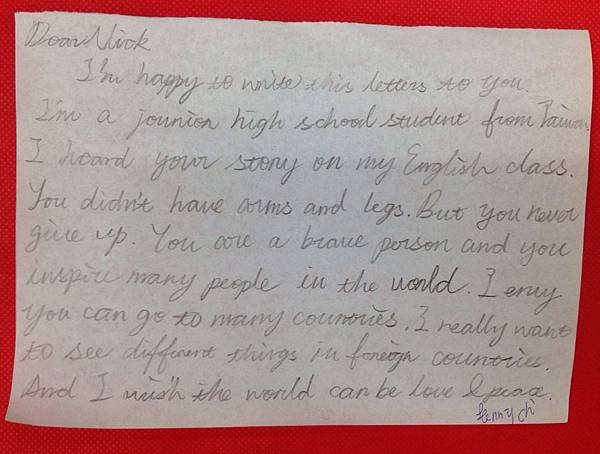 Dear Nick
I'm happy to write this letters to you.
I'm a jounior high school student from Taiwan.
I heard your story on my English class.
You didn't have arms and legs. But you never
give up. You are a brave person and you
inspire many people in the world. I envy
you can go to many countries. I really want
to see different things in foreigh countries.
And I wish the world can be love & peace.